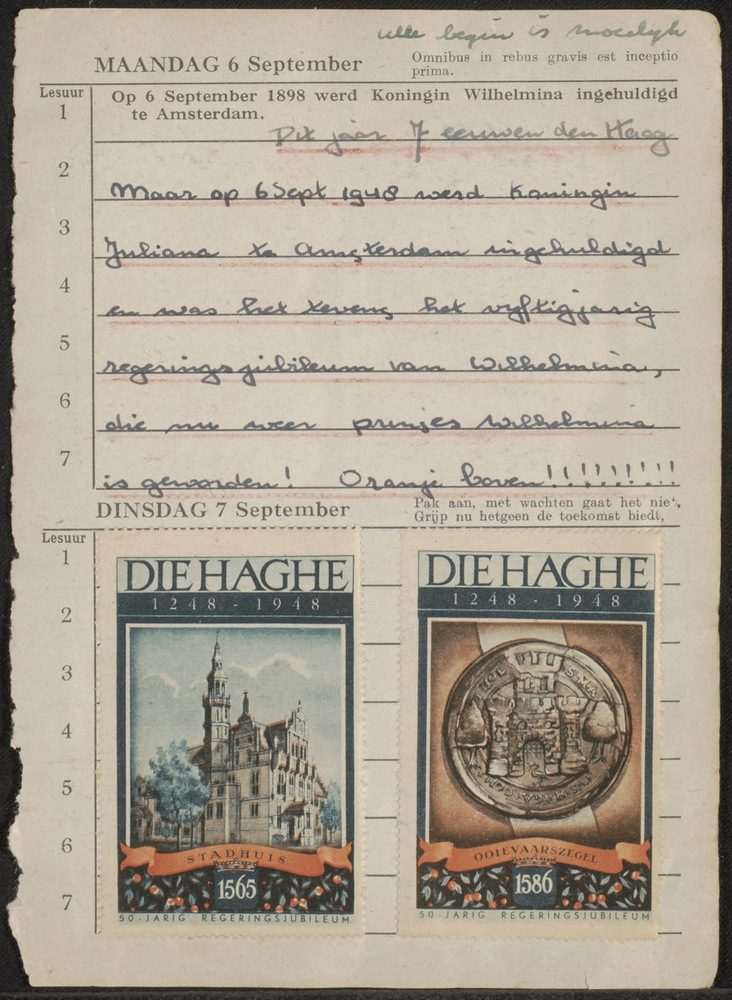 alle begin is moeilyk
MAANDAG 6 September
Omnibus in rebus gravis est inceptio
prima.
Lesuur
Op 6 September 1898 werd Koningin Wilhelmina ingehuldigd
1
te Amsterdam.
Dit jaar 7 eeuwen den Haag
2
Maar op 6 Sept 1948 werd Koningin
3
Juliana te Amsterdam ingehuldigd
4
en was het tevens het vyftigjarig
5
regeringsjubileum van Wilhelmina,
6
die nu weer prinses Wilhelmina
7
is geworden! Oranje boven!!!!!!!!!
DINSDAG 7 September
Pak aan, met wachten gaat het niet,
Grijp nu hetgeen de toekomst biedt,
Lesuur
1
2
3
4
5
6
7
DIE HAGHE
1248 - 1948
STADHUIS
1565
50-JARIG REGERINGSJUBILEUM
DIE HAGHE
1248 - 1948
OOIEVAARSZEGEL
1586
50-JARIG REGERINGSJUBILEUM